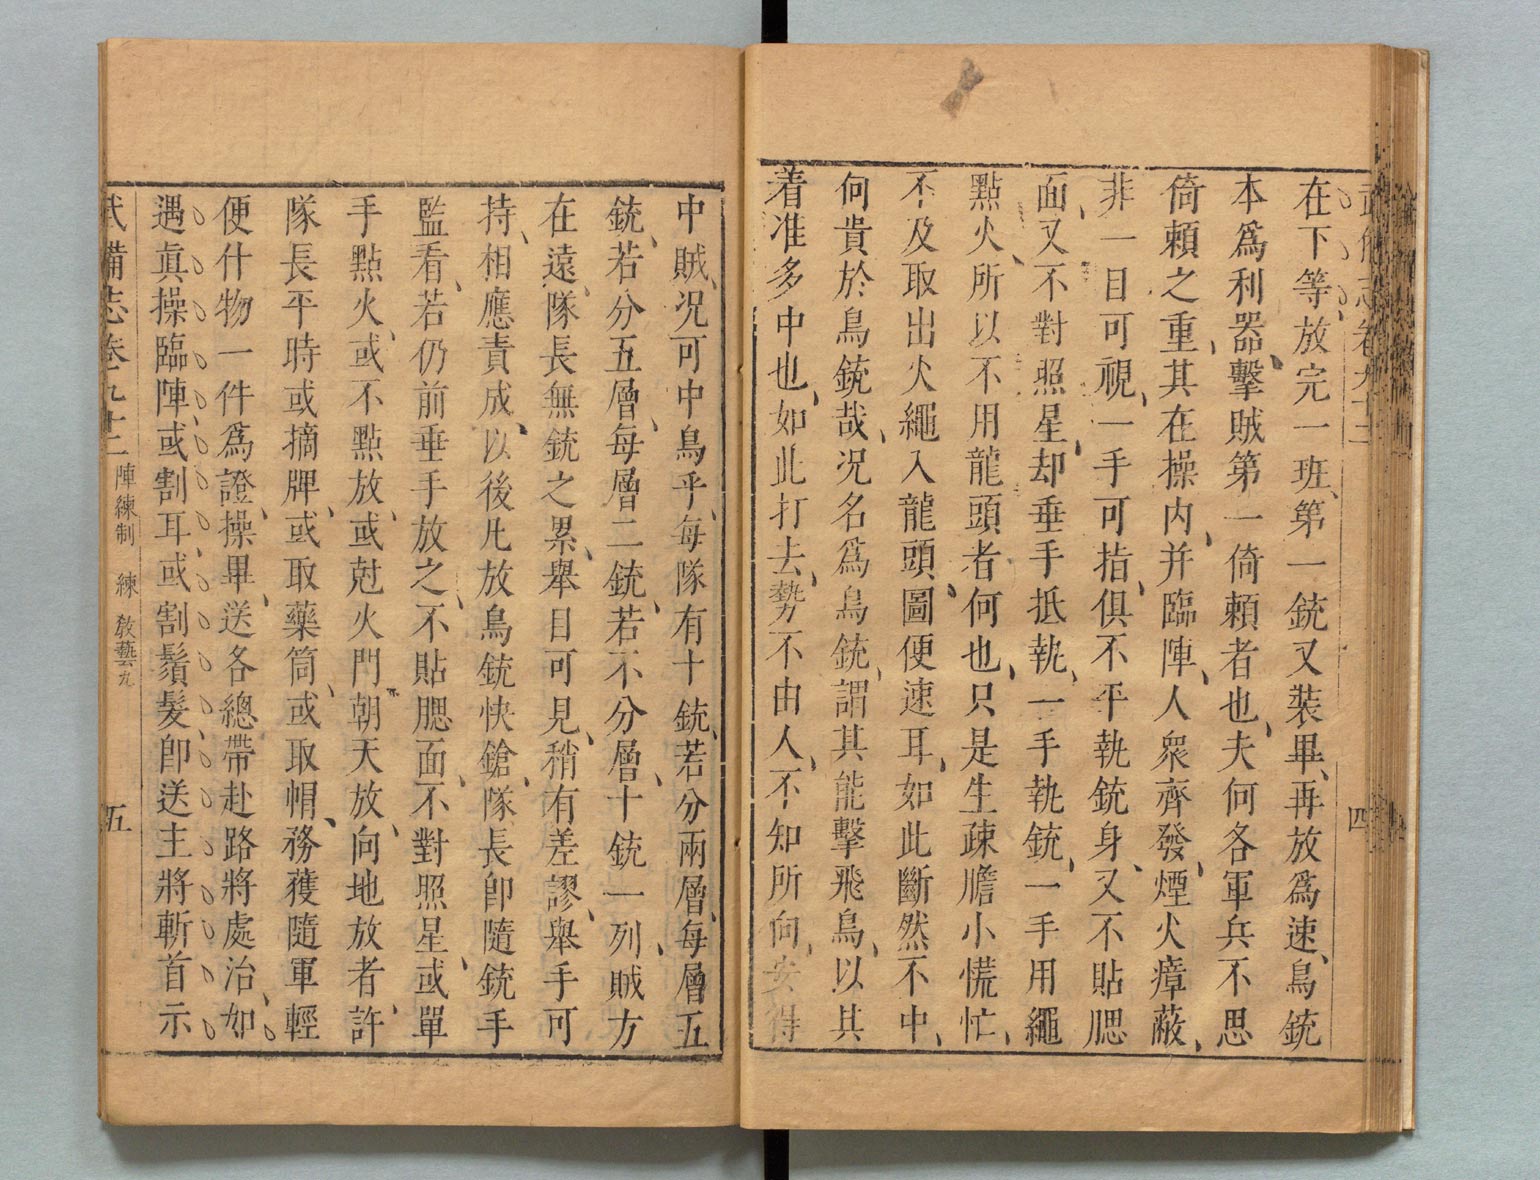 武備志卷九十二
四
在下等放完一班第一銃又裝畢再放爲速鳥銃
本爲利器擊賊第一倚賴者也夫何各軍兵不思
倚賴之重其在操內并臨陣人衆齊發煙火瘴蔽
非一目可視一手可指俱不平執銃身又不貼腮
面又不對照星却垂手抵執一手執銃一手用繩
點火所以不用龍頭者何也只是生疎膽小慌忙
不及取出火繩入龍頭圖便速耳如此斷然不中
何貴於鳥銃哉况名爲鳥銃謂其能擊飛鳥以其
着准多中也如此打去勢不由人不知所向安得
中賊况可中鳥乎每隊有十銃若分兩層每層五
銃若分五層每層二銃若不分層十銃一列賊方
在遠隊長無銃之累舉目可見稍有差謬舉手可
持相應責成以後凡放鳥銃快鎗隊長卽隨銃手
監看若仍前垂手放之不貼腮面不對照星或單
手點火或不點放或尅火門朝天放向地放者許
隊長平時或摘牌或取藥筒或取帽務獲隨軍輕
便什物一件爲證操畢送各總帶赴路將處治如
遇眞操臨陣或割耳或割鬚髮卽送主將斬首示
武備志卷九十二 陣練制 練 敎藝九 五